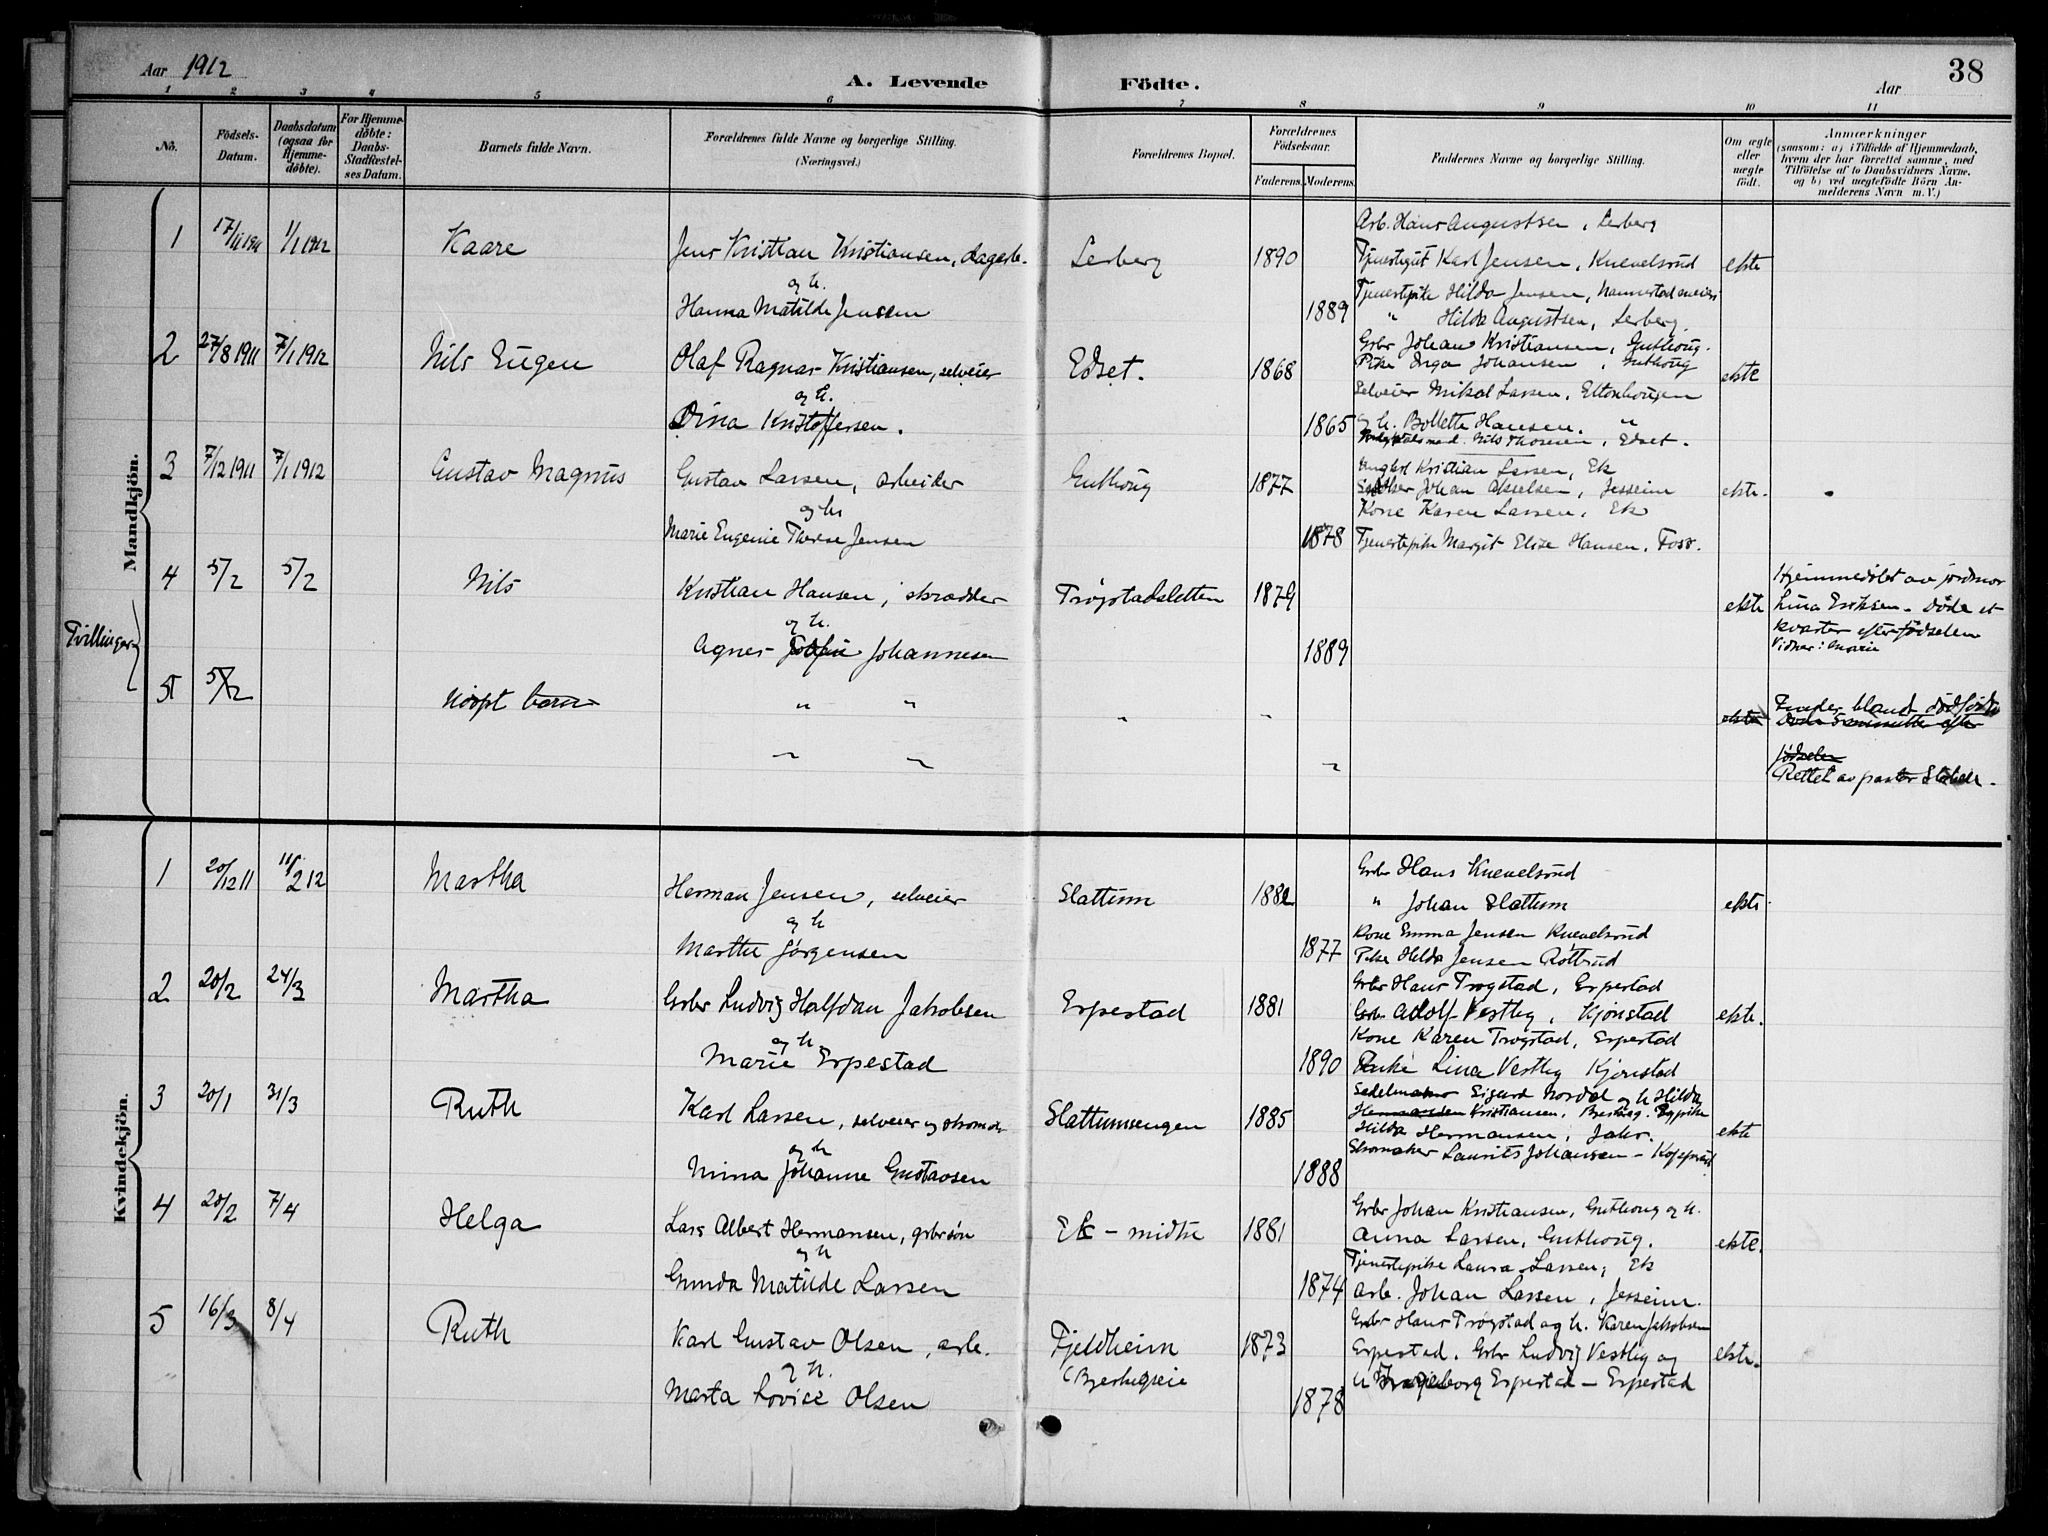 Aar 1912
A. Levende
Födte.
Aar
38
1 2 3 4 5 6 7 8 9 10 11
No.
Födsels-Datum.
Daabsdatum (ogsaa for Hjemme-döbte).
For Hjemme-döbte: Daabs-Stadfæstel-ses Datum.
Barnets fulde Navn.
Forældrenes fulde Navne og borgerlige Stilling. (Næringsvei.)
Forældrenes Bopæl.
Forældrenes Födselsaar.
Faderens. Moderens.
Faddernes Navne og borgerlige Stilling.
Om ægte eller uægte födt.
Anmærkninger
(saasom: a) i Tilfælde af Hjemmedaab, hvem der har forrettet samme, med Tilföielse af to Daabsvidners Navne, og b) ved uægtefödte Börn An-melderens Navn m. V.)
Mandkjön.
1 17/11 1911 1/1 1912 Kaare Jens Kristian Kristiansen, dagarb. Lerberg 1890 ekte
og h.
Hanna Matilde Jensen 1889
Arb. Hans Augustsen, Lerberg
Tjenestegut Karl Jensen, Knevelsrud
Tjenestepike Hilda Jensen,
" Hilda Augustsen, Lerberg.
2 27/8 1911 7/1 1912 Nils Eugen Olaf Ragnar Kristiansen, selveier Edset. 1868 ekte
og h.
Dina Kristoffersen. 1865
Grbr Johan Kristiansen, Guthoug.
Pike Inga Johansen, Guthoug
Selveier Mikal Larsen, Eltonhougen
og h. Bollette Hansen. "
Nils Thoresen, Edset.
3 7/12 1911 7/1 1912 Gustav Magnus Gustav Larsen, arbeider Guthoug 1877 ekte.
og h.
Marie Eugenie Therese Jensen 1878
Ungkrl Kristian Larsen, Ek
Johan Akselsen, Jesseim
Kone Karen Larsen, Ek
Tjenestepike Margit Elise Hansen, Foss.
Tvillinger
4 5/2 5/2 Nils Kristian Hansen, skrædder Trøgstadsletten 1879 ekte
og h.
Agnes Sofie Johannesen 1889
Hjemmedøbt av jordmor
Lina Eriksen. Døde et
kvarter efter fødselen
Vidner: Marie
5 5/2 Udøpt barn " " " " ekte
" " "
Findes blandt dødfødte
Døde 5 minutter efter
fødselen
Rettet av pastor Stabell.
Kvindekjön.
1 20/12 11 11/2 12 Martha Herman Jensen, selveier Slattum 1882 ekte
og h
Marthe Jørgensen 1877
Grbr Hans Knevelsrud
" Johan Slattum
Kone Emma Jensen Knevelsrud
Pike Hilda Jensen Røttrud
2 20/2 24/3 Martha Grbr Ludvig Halfdan Jakobsen Erpestad 1881 ekte.
og h.
Marie Erpestad 1890
Grbr Hans Trøgstad, Erpestad
Grbr. Adolf Vestby, Kjonstad
Kone Karen Trøgstad, Erpestad
Enke Lina Vestby Kjonstad
3 20/1 31/3 Ruth Karl Larsen, selveier og skomak. Slattumsengen 1885 ekte
og h
Mina Johanne Gustavsen 1888
Sadelmaker Sigurd Nordal og h Hilda
Hermansen Kristiansen,
Hilda Hermansen, Jahr.
Skomaker Laurits Johansen
4 20/2 7/4 Helga Lars Albert Hermansen, grbrsøn Ek - midtre 1881 ekte.
og h
Gunda Matilde Larsen 1874
Grbr Johan Kristiansen, Guthoug og h.
Anna Larsen, Guthoug.
Tjenestepike Laura Larsen, Ek
Arb. Johan Larsen, Jesseim.
5 16/3 8/4 Ruth Karl Gustav Olsen, arb. Fjeldheim 1873 ekte.
og h.
Marta Lovise Olsen (Bjerkegeie 1878
Grbr Hans Trøgstad og h. Karen Jakobsen
Erpestad. Grbr Ludvig Vestby og
h Ingeborg Erpestad - Erpestad